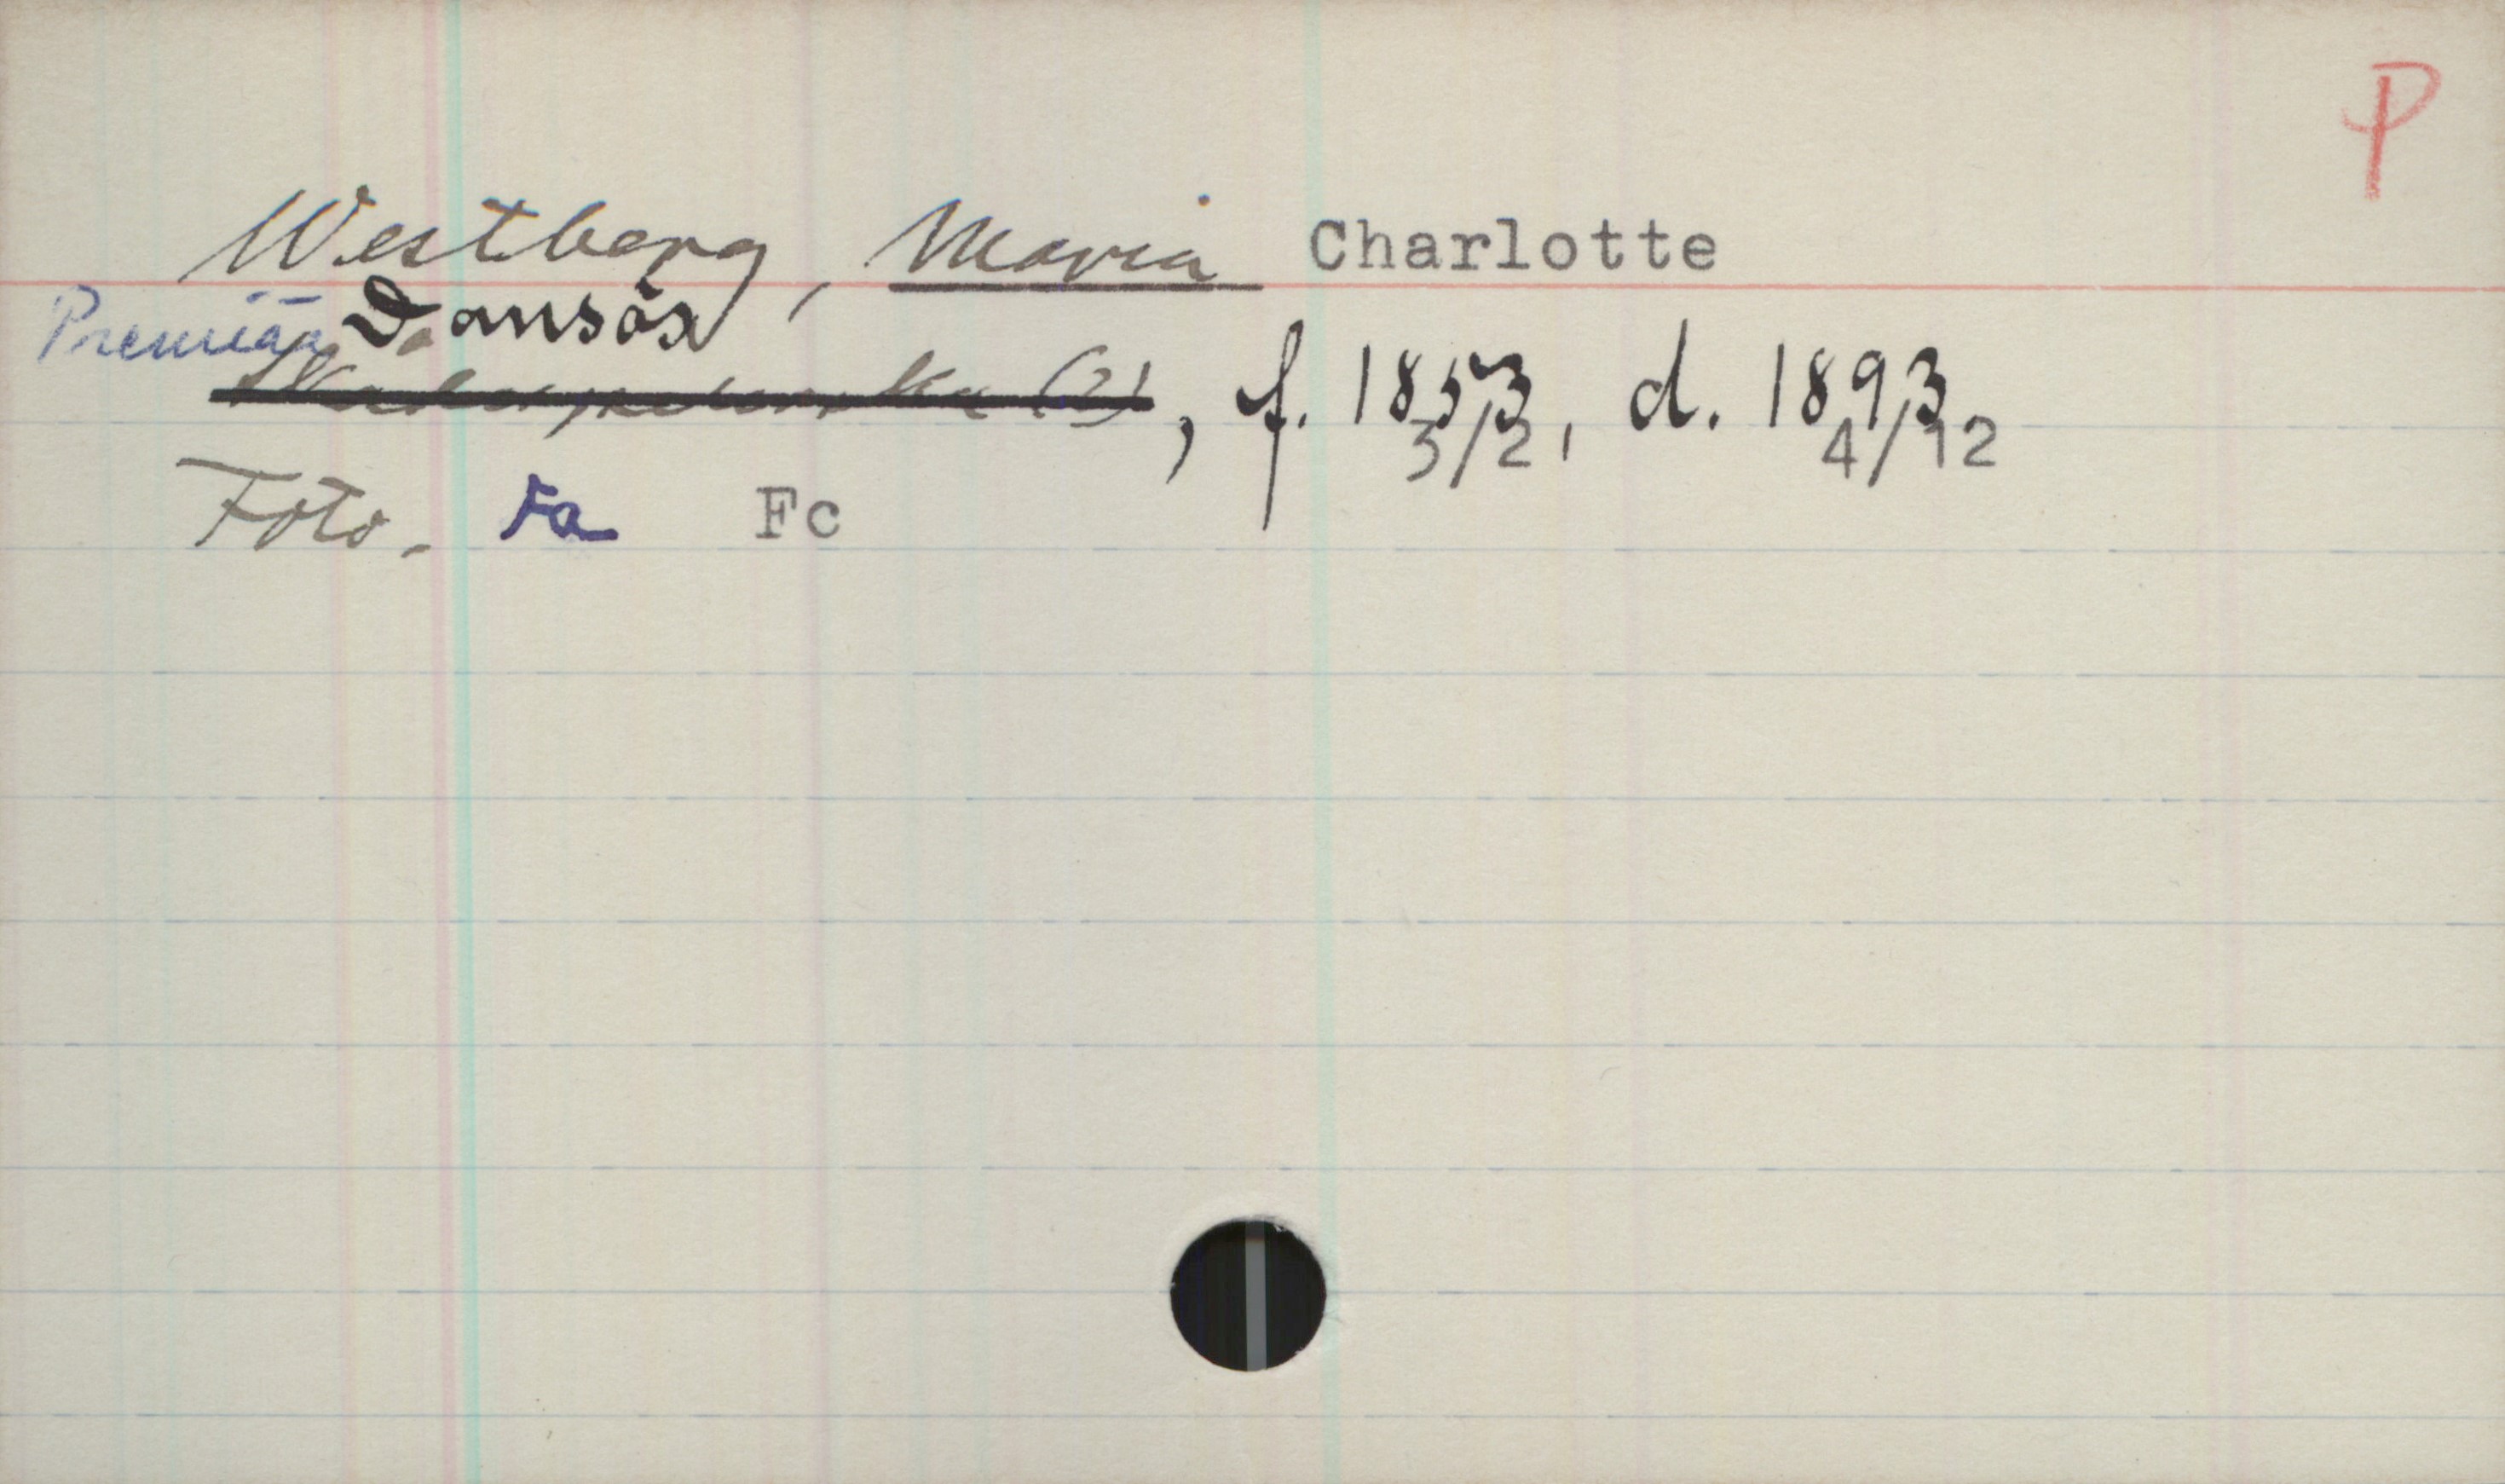 P
Westberg, Maria Charlotte
Premiär Dansös
, f. 1853, d. 1893
3/2, 4/12
Foto. Fa Fc